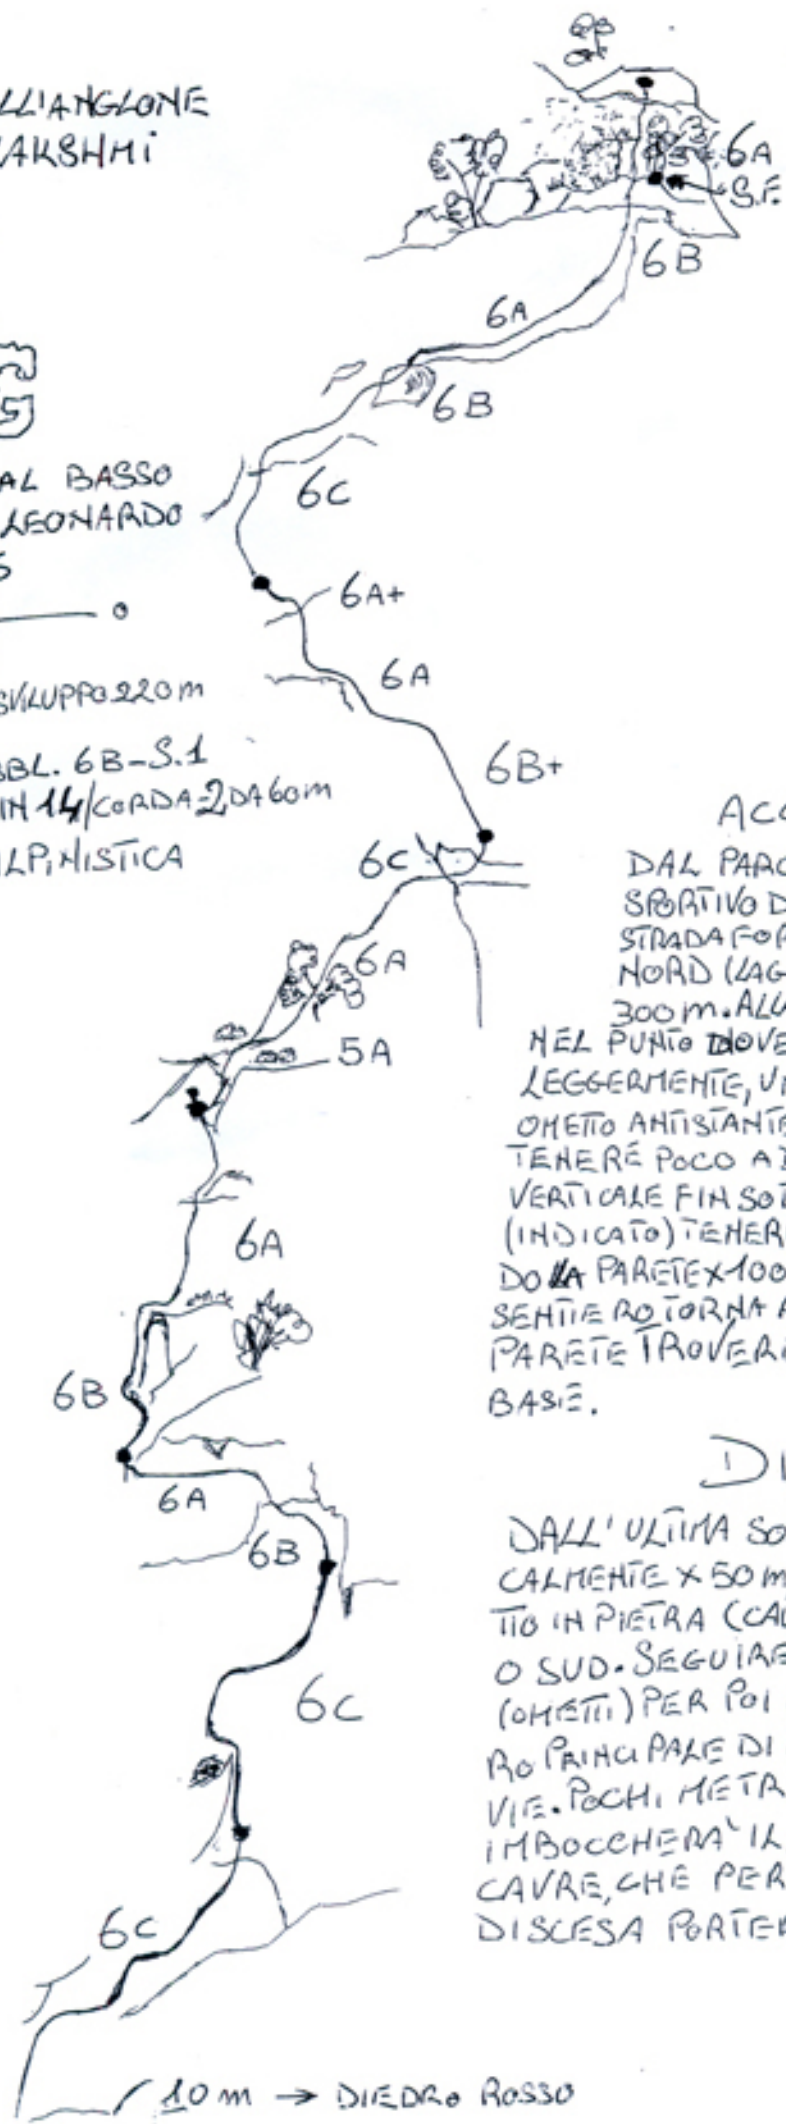 LL'ANGLONE
LAKSHMI
6A
S.F.
6B
6A
6B
AL BASSO
LEONARDO
6C
6A+
SVILUPPO 220m
6A
BBL. 6B-S.1
IN 14/CORDA=2 DA 60m
ALPINISTICA
6B+
6C
6A
5A
6A
6B
6A
6B
6C
6C
10m → DIEDRO ROSSO
ACC
DAL PARC
SPORTIVO D
STRADA FOR
NORD (LAG
300m. ALL
NEL PUNTO DOVE
LEGGERMENTE, UN
OMETTO ANTISTANTE
TENERE POCO A D
VERTICALE FIN SOT
(INDICATO) TENER
DO LA PARETE X 100
SENTIERO TORNA A
PARETE TROVERE
BASE.
DI
DALL'ULTIMA SO
CALMENTE X 50m
TTO IN PIETRA (CAL
O SUD. SEGUIRE
(OMETTI) PER POI
RO PRINCIPALE DI
VIE. POCHI METR
IMBOCCHERA' IL
CAVRE, CHE PER
DISCESA PORTER